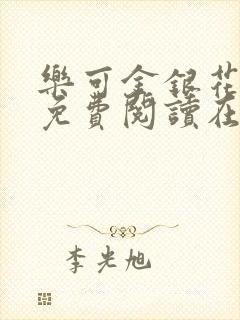 樂可金銀花
免費閱讀在
李光旭